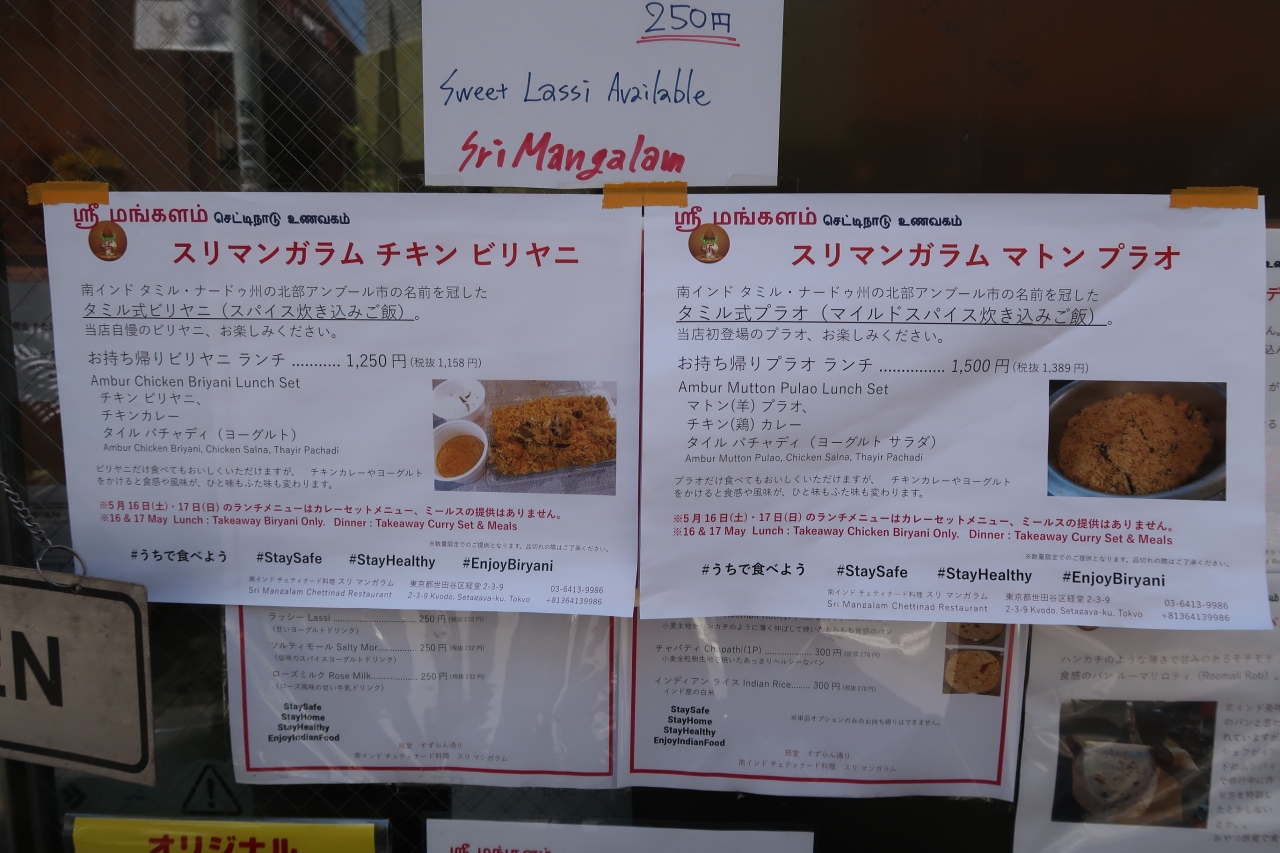 250円
Sweet Lassi Available
Sri Mangalam
ஸ்ரீ மங்களம் செட்டிநாடு உணவகம்
スリマンガラム チキン ビリヤニ
南インド タミル・ナードゥ州の北部アンブール市の名前を冠した
タミル式ビリヤニ（スパイス炊き込みご飯）。
当店自慢のビリヤニ、お楽しみください。
お持ち帰りビリヤニ ランチ ........... 1,250 円 (税抜 1,158 円)
Ambur Chicken Briyani Lunch Set
チキン ビリヤニ、
チキンカレー
タイル パチャディ（ヨーグルト）
Ambur Chicken Briyani, Chicken Salna, Thayir Pachadi
ビリヤニだけ食べてもおいしくいただけますが、 チキンカレーやヨーグルト
をかけると食感や風味が、ひと味もふた味も変わります。
※5月16日(土)・17日(日) のランチメニューはカレーセットメニュー、ミールスの提供はありません。
※16 & 17 May Lunch : Takeaway Biryani Only. Dinner : Takeaway Curry Set & Meals
※数量限定でのご提供となります。品切れの際はご了承ください。
#うちで食べよう #StaySafe #StayHealthy #EnjoyBiryani
南インド チェティナード料理 スリ マンガラム 東京都世田谷区経堂 2-3-9 03-6413-9986
Sri Mangalam Chettinad Restaurant 2-3-9 Kyodo, Setagaya-ku, Tokyo +81364139986
ஸ்ரீ மங்களம் செட்டிநாடு உணவகம்
スリマンガラム マトン プラオ
南インド タミル・ナードゥ州の北部アンブール市の名前を冠した
タミル式プラオ（マイルドスパイス炊き込みご飯）。
当店初登場のプラオ、お楽しみください。
お持ち帰りプラオ ランチ ............... 1,500 円 (税抜 1,389 円)
Ambur Mutton Pulao Lunch Set
マトン(羊) プラオ、
チキン(鶏) カレー
タイル パチャディ（ヨーグルト サラダ）
Ambur Mutton Pulao, Chicken Salna, Thayir Pachadi
プラオだけ食べてもおいしくいただけますが、 チキンカレーやヨーグルト
をかけると食感や風味が、ひと味もふた味も変わります。
※5月16日(土)・17日(日) のランチメニューはカレーセットメニュー、ミールスの提供はありません。
※16 & 17 May Lunch : Takeaway Chicken Biryani Only. Dinner : Takeaway Curry Set & Meals
※数量限定でのご提供となります。品切れの際はご了承ください。
#うちで食べよう #StaySafe #StayHealthy #EnjoyBiryani
南インド チェティナード料理 スリ マンガラム 東京都世田谷区経堂 2-3-9 03-6413-9986
Sri Mangalam Chettinad Restaurant 2-3-9 Kyodo, Setagaya-ku, Tokyo +81364139986
EN
ラッシー Lassi ........ 250 円 (税抜 232 円)
（甘いヨーグルトドリンク）
ソルティモール Salty Mor........ 250 円 (税抜 232 円)
（塩味のスパイスヨーグルトドリンク）
ローズミルク Rose Milk........ 250 円 (税抜 232 円)
（ローズ風味の甘い牛乳ドリンク）
StaySafe
StayHome
StayHealthy
EnjoyIndianFood
経堂 すずらん通り
南インド チェティナード料理 スリ マンガラム
チャパティ Chapathi(1P) ........ 300 円 (税抜 278 円)
インディアン ライス Indian Rice....... 300 円 (税抜 278 円)
インド産の白米
※単品オプションのみのお持ち帰りはできません。
StaySafe
StayHome
StayHealthy
EnjoyIndianFood
経堂 すずらん通り
南インド チェティナード料理 スリ マンガラム
ハンカチのような薄さで甘みのあるモチモチ
食感のパン ルーマリロティ（Roomali Roti）
オリジナル
ஸ்ரீ மங்களம்